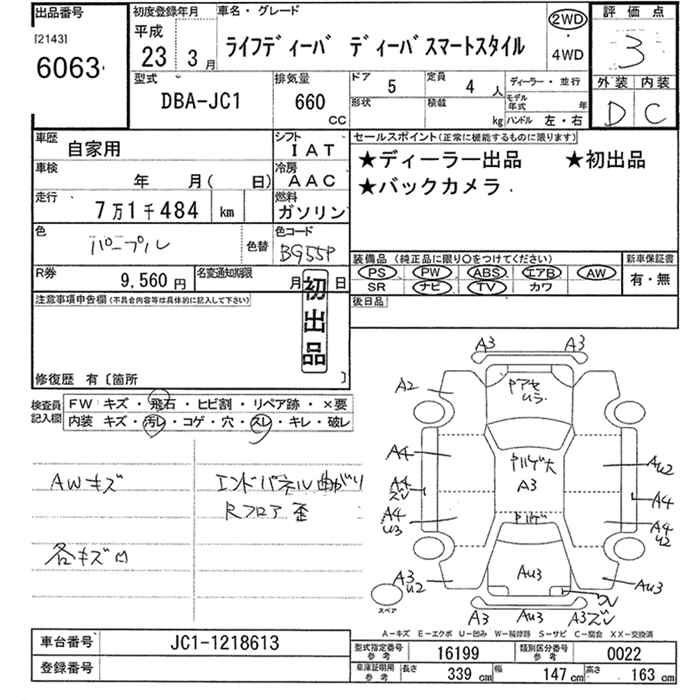 出品番号
[2143]
6063
初度登録年月
平成
23年 3月
車名・グレード
ライフディーバ ディーバスマートスタイル
2WD
・
4WD
評価点
3
外装 内装
D C
型式
DBA-JC1
排気量
660
CC
ドア
5
定員
4人
形状
積載
kg
ディーラー・並行
モデル年式 年
ハンドル 左・右
車歴
自家用
シフト
IAT
車検
年 月( 日)
冷房
AAC
走行
7万1千484 km
燃料
ガソリン
色
パープル
色替
色コード
BG55P
R券
9,560円
名変通知期限
月 日
セールスポイント(正常に機能するものに限ります)
★ディーラー出品 ★初出品
★バックカメラ
装備品(純正品に限り〇をつけてください)
PS PW ABS エアB AW
SR ナビ TV カワ
新車保証書
有・無
後日品
注意事項申告欄(不具合内容等は具体的に記入して下さい)
初出品
修復歴 有〔箇所 〕
検査員記入欄
FW キズ・飛石・ヒビ割・リペア跡・×要
内装 キズ・汚レ・コゲ・穴・スレ・キレ・破レ
AWキズ
エンドパネル曲がり
Rフロア歪
各キズ凹
A3 A3
A2
A4
A4
ズレ
A4
U3
A3
U2
A3
AU2
A4
A4
U2
AU3
AU3
A3 AU3 A3ズレ
スペア
A-キズ E-エクボ U-凹み W-補修跡 S-サビ C-腐食 XX-交換済
車台番号
JC1-1218613
登録番号
型式指定番号
参考
16199
類別区分番号
参考
0022
車庫証明用
参考
長さ 339cm 幅 147cm 高さ 163cm